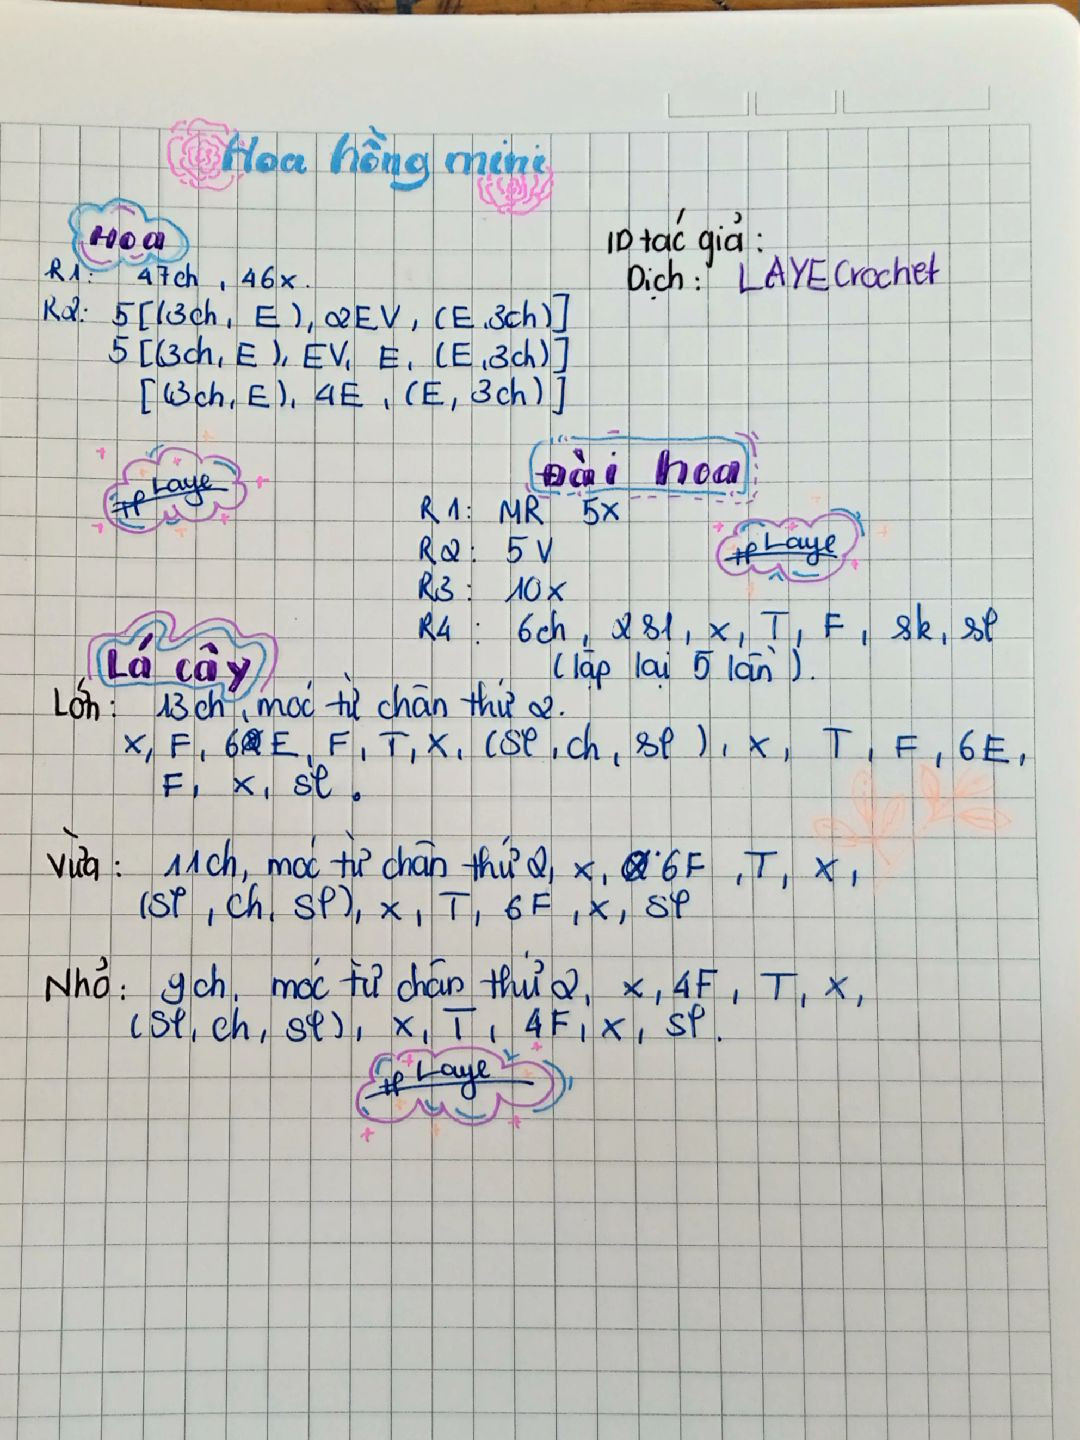 Hoa hồng mini
Hoa
ID tác giả :
Dịch : LAYECrochet
R1: 47ch , 46x.
R2: 5[(3ch, E), 2EV, (E,3ch)]
5[(3ch, E), EV, E, (E,3ch)]
[(3ch, E), 4E, (E, 3ch)]
Laye
Đài hoa
R1: MR 5x
Laye
R2: 5V
R3: 10x
R4 : 6ch, 2sl, x, T, F, sk, sl
(lặp lại 5 lần).
Lá cây
Lớn: 13ch, móc từ chân thứ 2.
x, F, 6E, F, T, X, (Sl, ch, sl), x, T, F, 6E,
F, x, sl.
Vừa: 11ch, móc từ chân thứ 2, x, 6F, T, x,
(Sl, ch, sl), x, T, 6F, x, sl
Nhỏ: 9ch, móc từ chân thứ 2, x, 4F, T, x,
(Sl, ch, sl), x, T, 4F, x, sl.
Laye